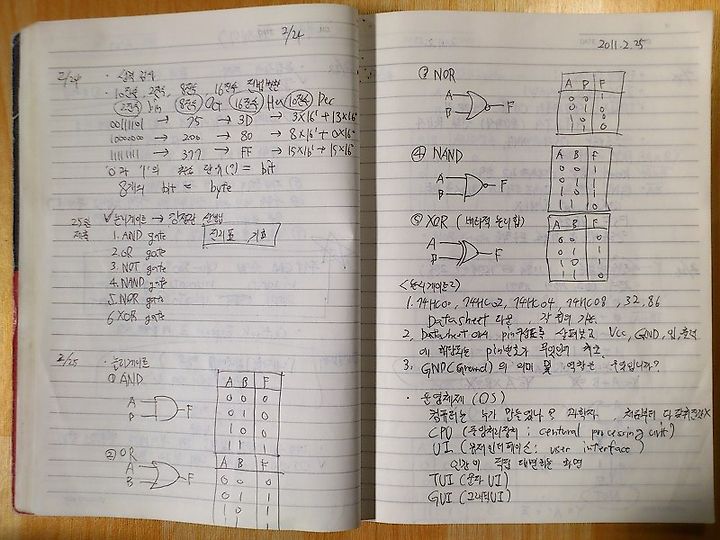 2/24
2/24
· 10진수, 2진수, 8진수, 16진수 진법변환
2진수 bin 8진수 Oct 16진수 Hex 10진수 Dec
00111101 → 75 → 3D → 3×16¹+13×16⁰
10000000 → 200 → 80 → 8×16¹+0×16⁰
11111111 → 377 → FF → 15×16¹+15×16⁰
'0'과 '1'의 최소 단위(?) = bit
8개의 bit = byte
논리게이트 →
25일
제출
진리표 기호
1. AND gate
2. OR gate
3. NOT gate
4. NAND gate
5. NOR gate
6. XOR gate
2/25 · 논리게이트
① AND
A
B
F
A B F
0 0 0
0 1 0
1 0 0
1 1 1
② OR
A
B
F
A B F
0 0 0
0 1 1
1 0 1
1 1 1
2011.2.25
③ NOR
A
B
F
A B F
0 0 1
0 1 0
1 0 0
1 1 0
④ NAND
A
B
F
A B F
0 0 1
0 1 1
1 0 1
1 1 0
⑤ XOR (배타적 논리합)
A
B
F
A B F
0 0 0
0 1 1
1 0 1
1 1 0
<논리게이트2>
1. 74HC00, 74HC02, 74HC04, 74HC08, 32, 86
Datasheet 다운 각 핀의 기능
2. Datasheet pin구성도를 살펴보고 Vcc, GND, 입, 출력
에 해당되는 pin번호가 무엇인지
3. GND(Ground)의 의미 및 역할은 무엇입니까?
· 운영체제 (OS)
컴퓨터는 누가 만들었나? 과학자 처음부터 다
CPU (중앙처리장치 : centural processing unit)
UI (유저인터페이스 : user interface)
인간이 직접 대면하는 화면
TUI (문자 UI)
GUI (그래픽UI)